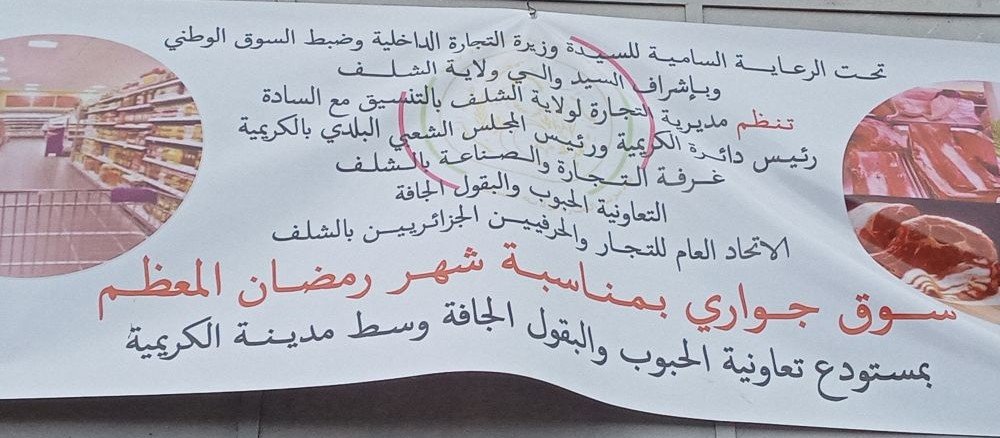 تحت الرعاية السامية للسيدة وزيرة التجارة الداخلية وضبط السوق الوطني
وبإشراف السيد والي ولاية الشلف
تنظم مديرية التجارة لولاية الشلف بالتنسيق مع السادة
رئيس دائرة الكريمية ورئيس المجلس الشعبي البلدي بالكريمية
غرفة التجارة والصناعة بالشلف
التعاونية الحبوب والبقول الجافة
الاتحاد العام للتجار والحرفيين الجزائريين بالشلف
سوق جواري بمناسبة شهر رمضان المعظم
بمستودع تعاونية الحبوب والبقول الجافة وسط مدينة الكريمية